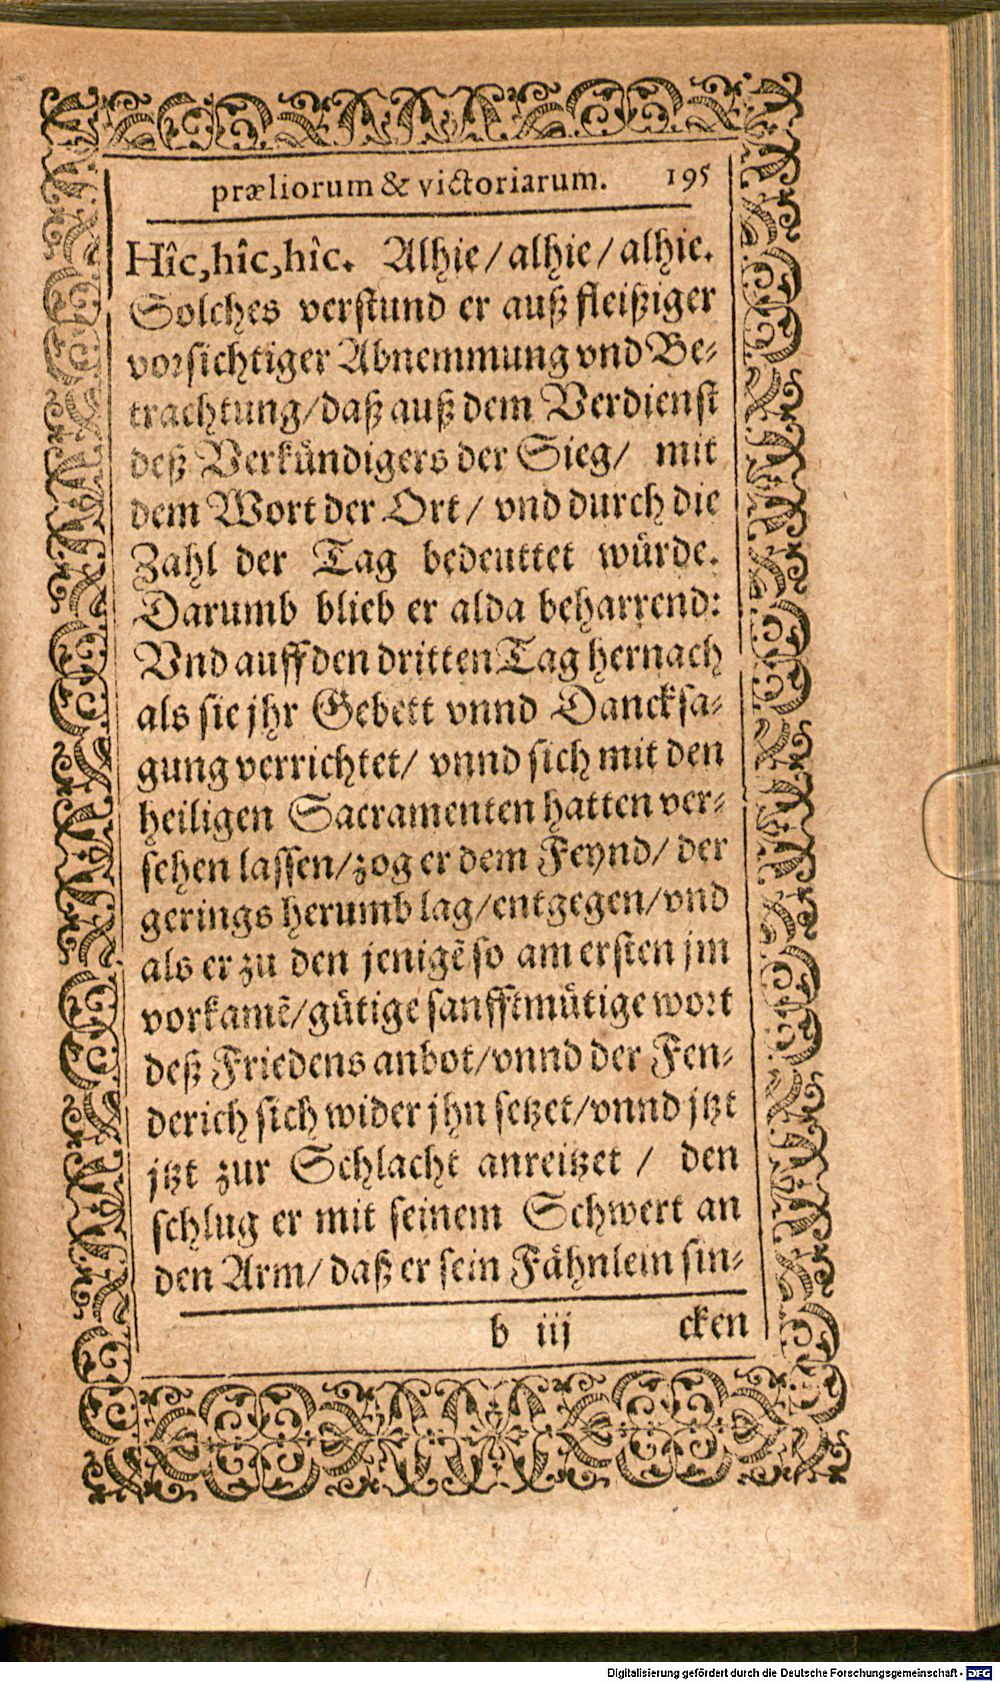 præliorum & victoriarum. 195
Hîc, hîc, hîc. Alhie/ alhie/ alhie.
Solches verstund er auß fleißiger
vorsichtiger Abnemmung vnd Be-
trachtung/ daß auß dem Verdienst
deß Verkündigers der Sieg/ mit
dem Wort der Ort/ vnd durch die
Zahl der Tag bedeuttet würde.
Darumb blieb er alda beharrend:
Vnd auff den dritten Tag hernach
als sie jhr Gebett vnnd Dancksa-
gung verrichtet/ vnnd sich mit den
heiligen Sacramenten hatten ver-
sehen lassen/ zog er dem Feynd/ der
gerings herumb lag/ entgegen/ vnd
als er zu den jenigẽ so am ersten jm
vorkamẽ/ gütige sanfftmütige wort
deß Friedens anbot/ vnnd der Fen-
derich sich wider jhn setzet/ vnnd jtzt
jtzt zur Schlacht anreitzet / den
schlug er mit seinem Schwert an
den Arm/ daß er sein Fähnlein sin-
b iij cken
Digitalisierung gefördert durch die Deutsche Forschungsgemeinschaft - DFG